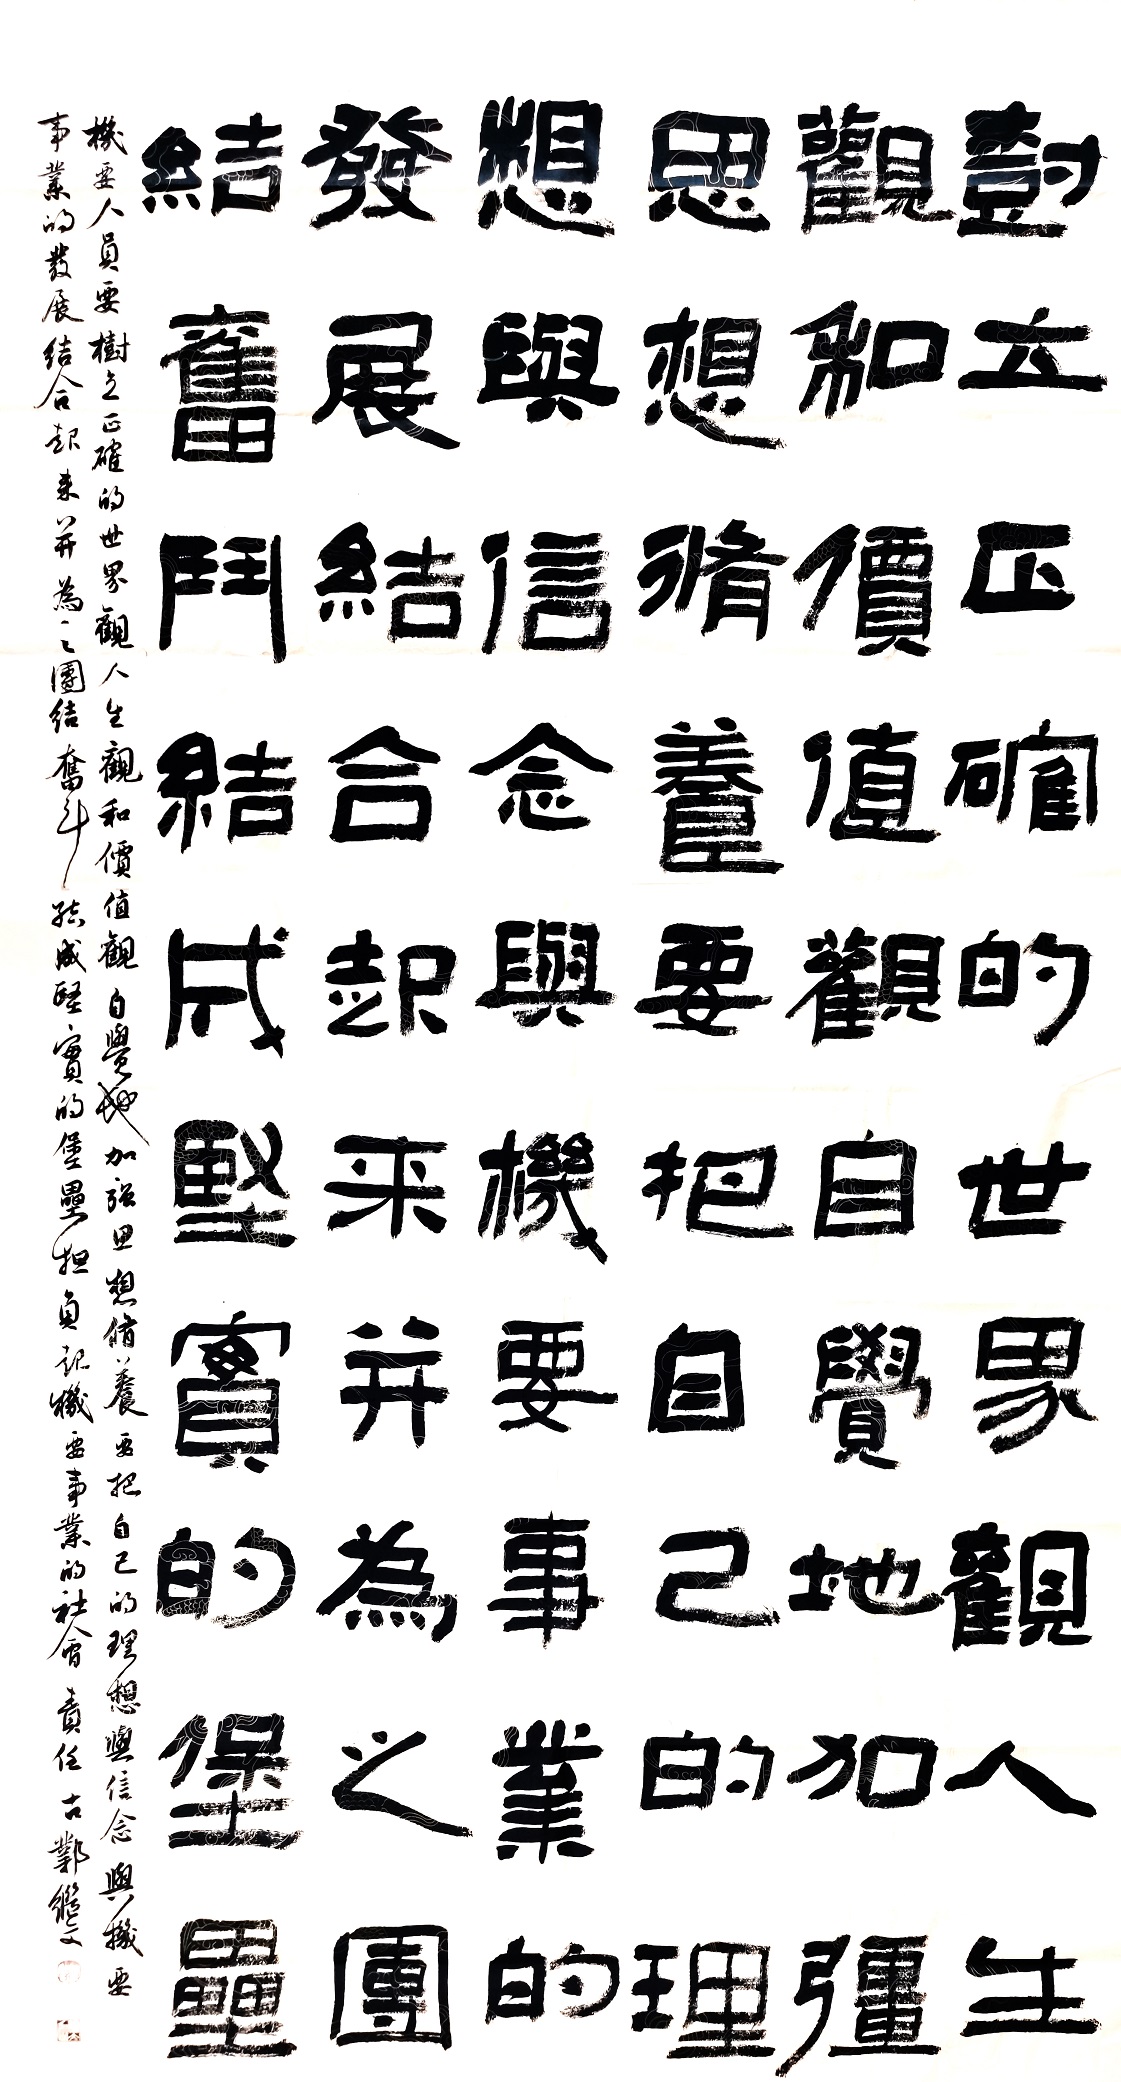 尌立正確的世界觀人生
觀和價值觀自覺地加彊
思想脩養要把自己的理
想與信念與機要事業的
發展結合起来并為之團
結奮鬥結成堅實的堡壘
機要人員要樹立正確的世界觀人生觀和價值觀自覺地加强思想脩養要把自己的理想與信念與機要
事業的發展结合起来并為之團结奮斗结成堅實的堡壘担負起機要事業的社會責任古鄴繼文